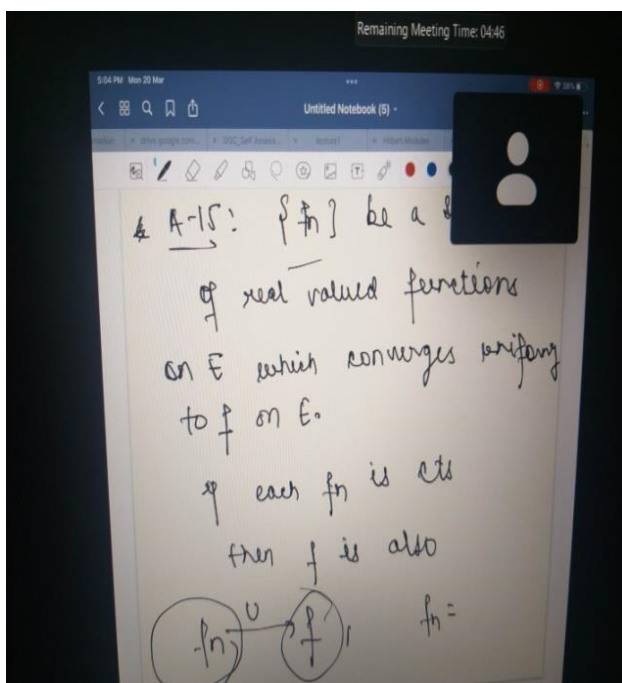 Remaining Meeting Time: 04:46
5:04 PM Mon 20 Mar
Untitled Notebook (5)
Hilbert Modules
A-15: {fn} be a
of real valued functions
on E which converges
to f on E.
each fn is cts
then f is also
fn U f fn =